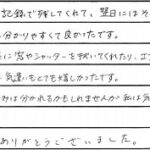 記録で残してくれて、翌日にはそ
分かりやすくて良かったです。
に窓やシャッターを拭いてくれたり、ゴ
気遣いもとても嬉しかったです。
みは分かれるかもしれませんが私は気
ありがとうございました。